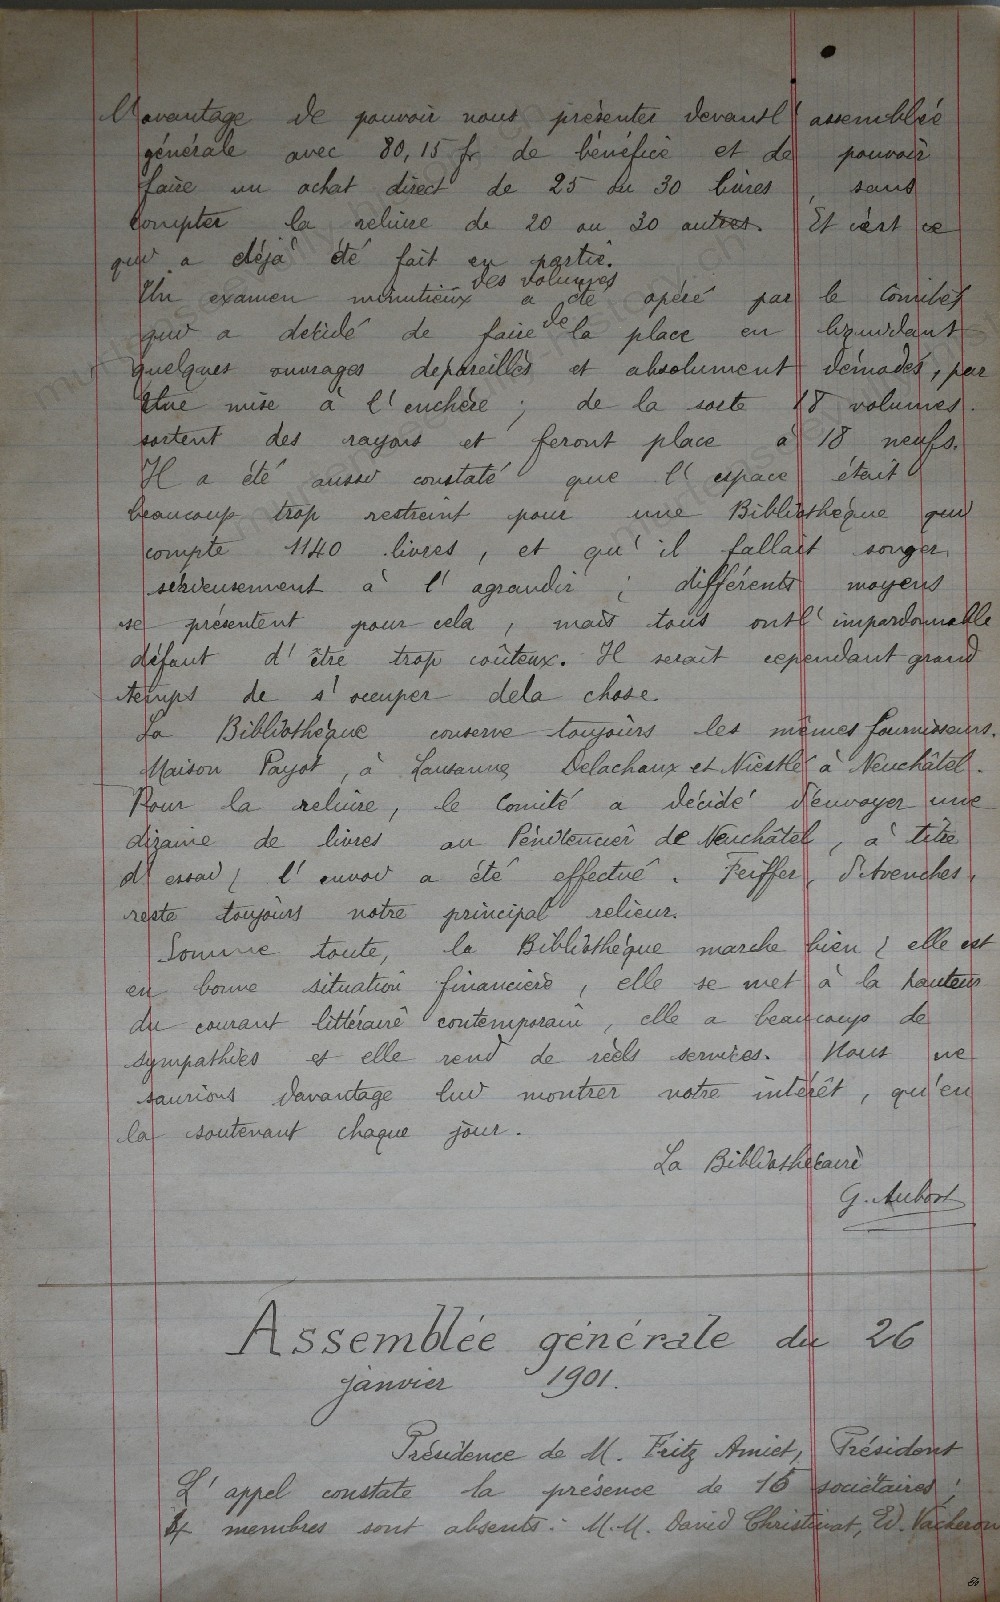 l'avantage de pouvoir nous présenter devant l'assemblée
générale avec 80,15 fr de bénéfice et de pouvoir
faire un achat direct de 25 ou 30 livres, sans
compter la reliure de 20 ou 30 autres. Et c'est ce
qui a déjà été fait en partie.
des volumes
Un examen minutieux a été opéré par le Comité
qui a décidé de faire de la place en liquidant
quelques ouvrages dépareillés et absolument démodés, par
une mise à l'enchère ; de la sorte 18 volumes
sortent des rayons et feront place à 18 neufs.
Il a été aussi constaté que l'espace était
beaucoup trop restreint pour une Bibliothèque qui
compte 1140 livres, et qu'il fallait songer
sérieusement à l'agrandir ; différents moyens
se présentent pour cela, mais tous ont l'impardonnable
défaut d'être trop coûteux. Il serait cependant grand
temps de s'occuper de la chose.
La Bibliothèque conserve toujours les mêmes fournisseurs.
Maison Payot, à Lausanne Delachaux et Niestlé à Neuchâtel.
Pour la reliure, le Comité a décidé d'envoyer une
dizaine de livres au Pénitencier de Neuchâtel, à titre
d'essai ; l'envoi a été effectué. Feiffer, d'Avenches,
reste toujours notre principal relieur.
Somme toute, la Bibliothèque marche bien ; elle est
en bonne situation financière, elle se met à la hauteur
du courant littéraire contemporain, elle a beaucoup de
sympathies et elle rend de réels services. Nous ne
saurions davantage lui montrer notre intérêt, qu'en
la soutenant chaque jour.
La Bibliothécaire
G. Aubort
Assemblée générale du 26
janvier 1901.
Présidence de M. Fritz Amiet, Président
L'appel constate la présence de 16 sociétaires ;
membres sont absents : M.M. David Christinat, Ed. Vacheron